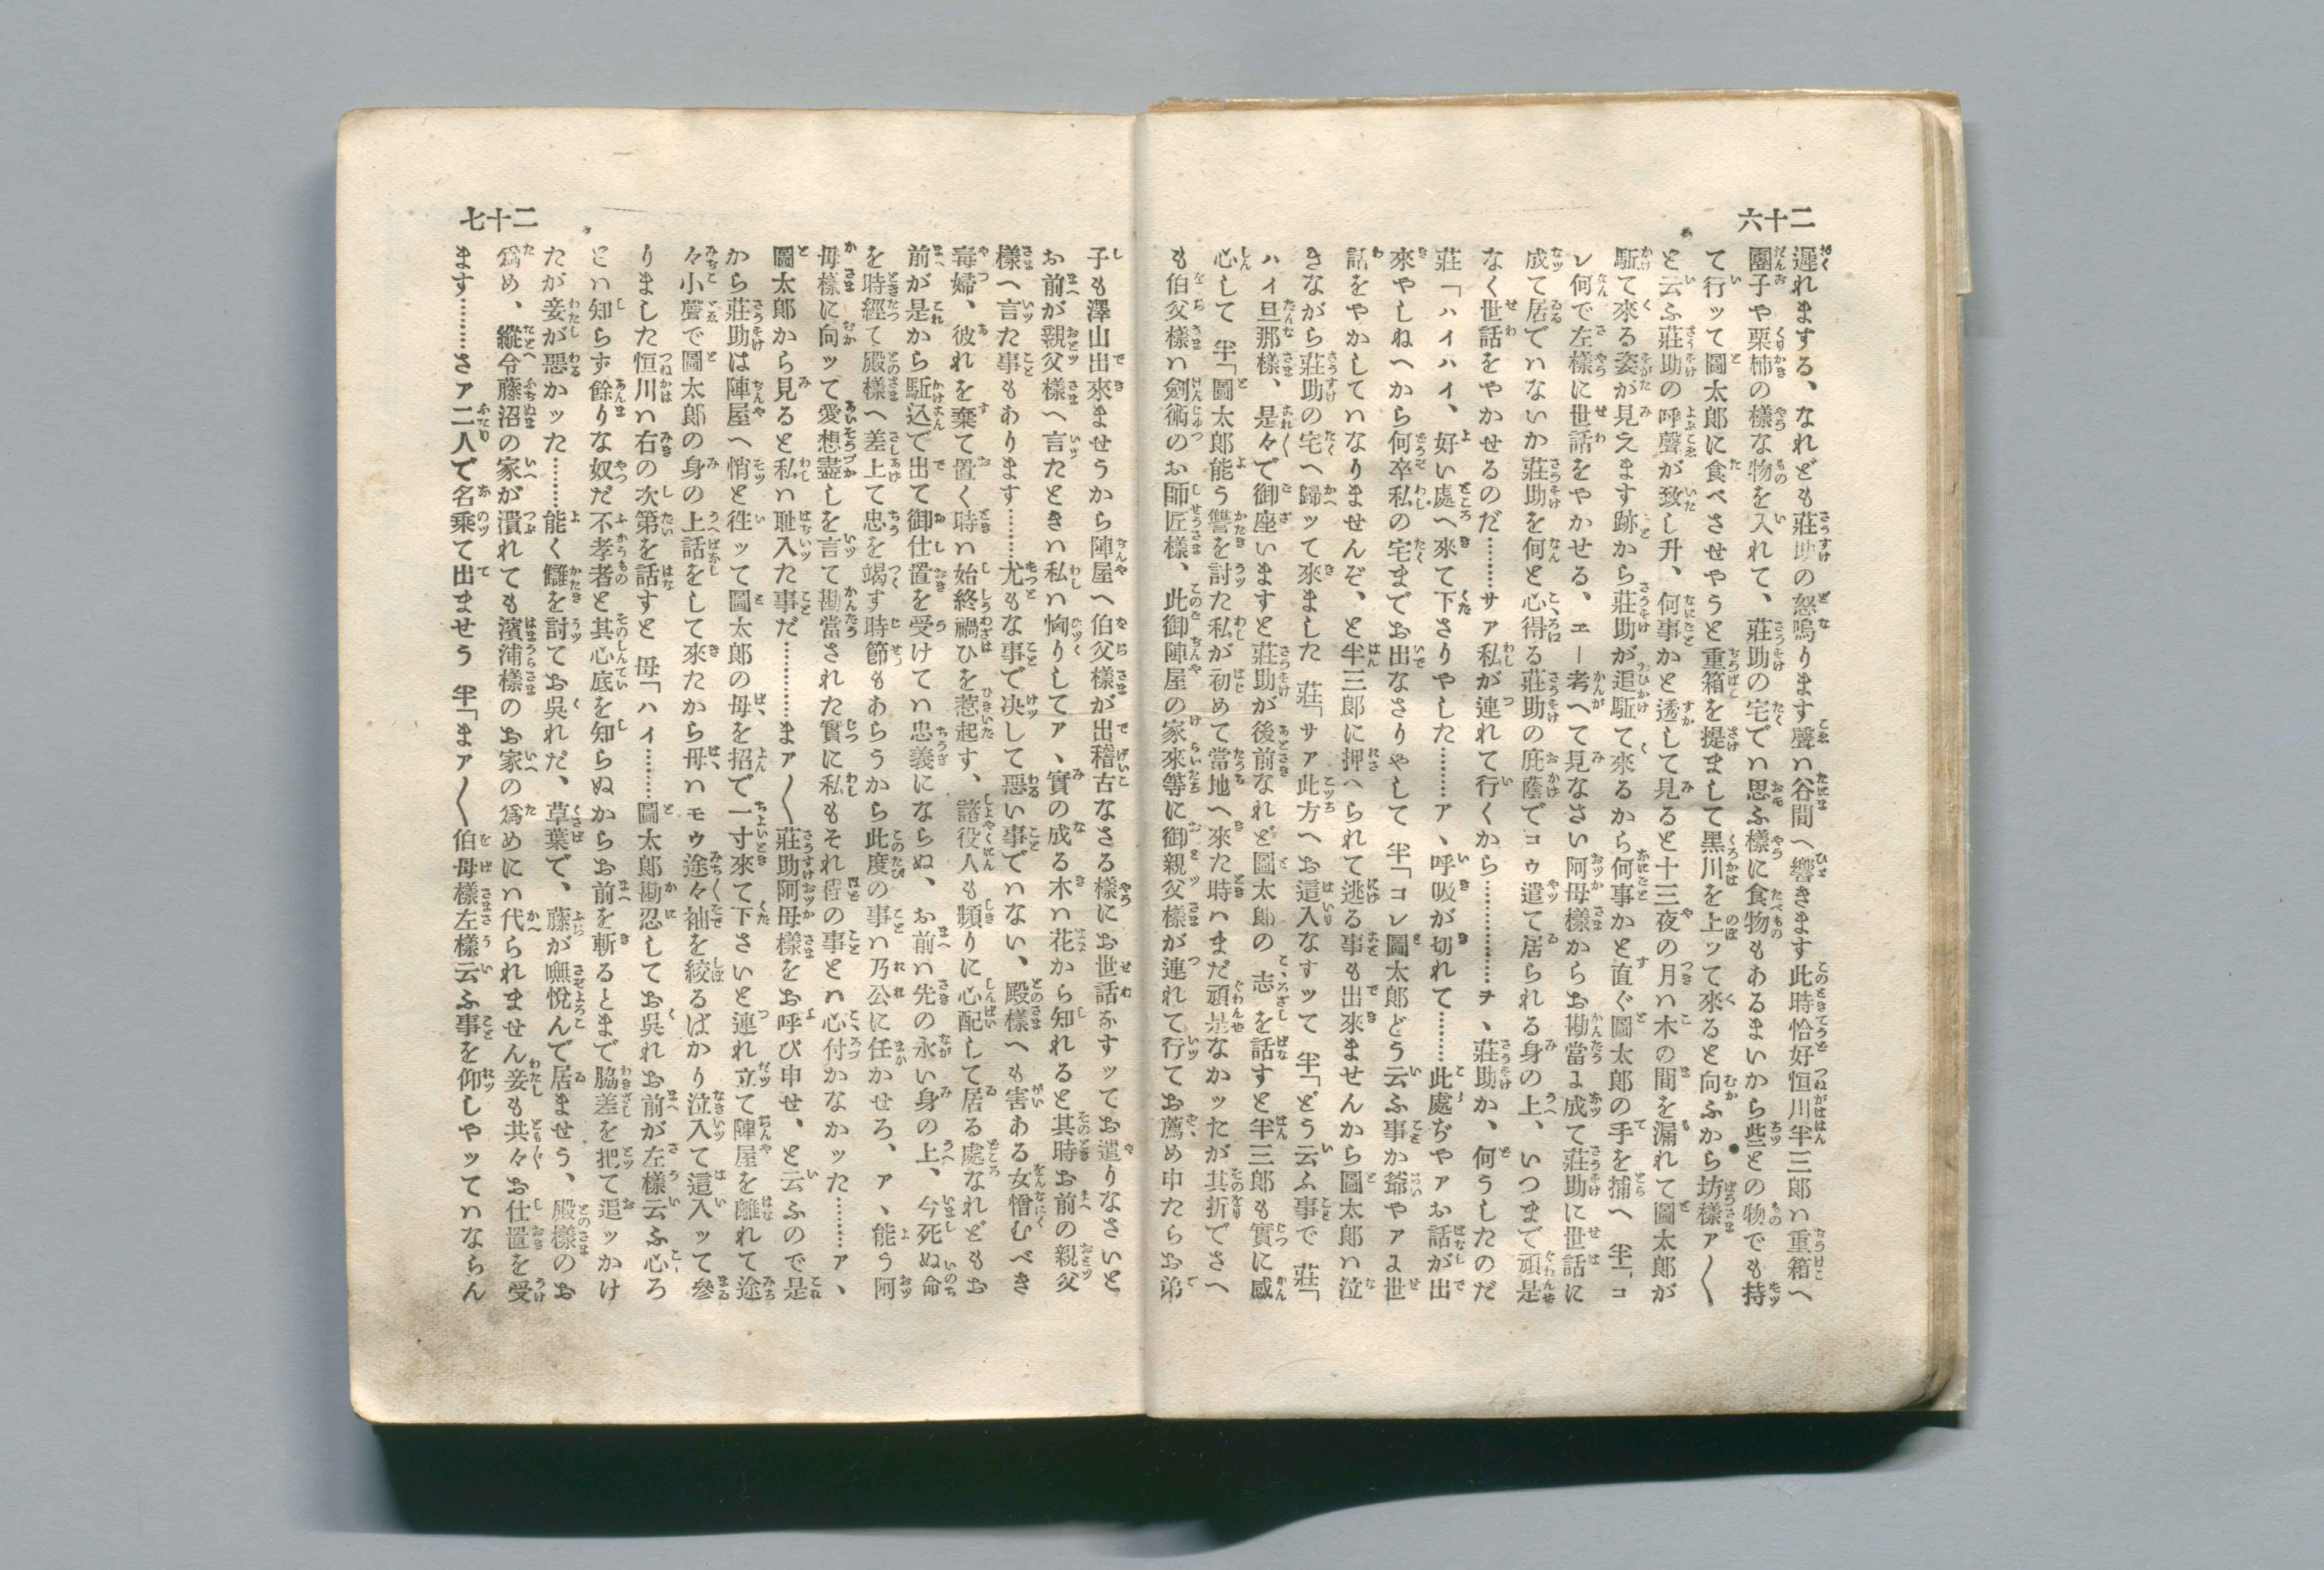 二十六
遲れまする、なれども莊助の怒鳴ります聲ハ谷間へ響きます此時恰好恒川半三郎ハ重箱へ
團子や栗柿の樣な物を入れて、莊助の宅でハ思ふ樣に食物もあるまいから些との物でも持
て行ッて圖太郎に食べさせやうと重箱を提まして黑川を上ッて來ると向ふから坊樣ァ〱
と云ふ莊助の呼聲が致し升、何事かと透して見ると十三夜の月ハ木の間を漏れて圖太郎が
駈て來る姿が見えます跡から莊助が追駈て來るから何事かと直ぐ圖太郎の手を捕へ 半「コ
レ何で左樣に世話をやかせる、エー考へて見なさい阿母樣からお勘當よ成て莊助に世話に
成て居でハないか莊助を何と心得る莊助の庇蔭でコゥ遣て居られる身の上、いつまで頑是
なく世話をやかせるのだ………サァ私が連れて行くから……………ヂ、莊助か、何うしたのだ
莊「ハイハイ、好い處へ來て下さりやした………ア、呼吸が切れて………此處ぢやァお話が出
來やしねへから何卒私の宅までお出なさりやして 半「コレ圖太郎どう云ふ事か爺やァよ世
話をやかしてハなりませんぞ、と半三郎に押へられて逃る事も出來ませんから圖太郎ハ泣
きながら莊助の宅へ歸ッて來ました 莊「サァ此方へお這入なすッて 半「どう云ふ事で 莊「
ハイ旦那樣、是々で御座いますと莊助が後前なれど圖太郎の志を話すと半三郎も實に感
心して 半「圖太郎能う讐を討た私が初めて當地へ來た時ハまだ頑是なかッたが其折でさへ
も伯父樣ハ劍術のお師匠樣、此御陣屋の家來等に御親父樣が連れて行てお薦め申たらお弟
二十七
子も澤山出來ませうから陣屋へ伯父樣が出稽古なさる樣にお世話なすッてお遣りなさいと
お前が親父樣へ言たときハ私ハ恟りしてア、實の成る木ハ花から知れると其時お前の親父
樣へ言た事もあります………尤もな事で决して惡い事でハない、殿樣へも害ある女憎むべき
毒婦、彼れを棄て置く時ハ始終禍ひを惹起す、諸役人も頻りに心配して居る處なれどもお
前が是から駈込で出て御仕置を受けてハ忠義にならぬ、お前ハ先の永い身の上、今死ぬ命
を時經て殿樣へ差上て忠を竭す時節もあらうから此度の事ハ乃公に任かせろ、ア、能う阿
母樣に向ッて愛想盡しを言て勘當された實に私もそれ程の事とハ心付かなかッた………ア、
圖太郎から見ると私ハ耻入た事だ…………まァ〱莊助阿母樣をお呼び申せ、と云ふので是
から莊助は陣屋へ悄と徃ッて圖太郎の母を招で一寸來て下さいと連れ立て陣屋を離れて途
々小聲で圖太郎の身の上話をして來たから母ハモゥ途々袖を絞るばかり泣入て這入ッて參
りました恒川ハ右の次第を話すと 母「ハイ………圖太郎勘忍してお呉れお前が左樣云ふ心ろ
とハ知らず餘りな奴だ不孝者と其心底を知らぬからお前を斬るとまで脇差を把て追ッかけ
たが妾が惡かッた………能く讎を討てお呉れだ、草葉で、藤が嘸悅んで居ませう、殿樣のお
爲め、縱令藤沼の家が潰れても濱浦樣のお家の爲めにハ代られません妾も共々お仕置を受
ます………さァ二人で名乘て出ませう 半「まァ〱伯母樣左樣云ふ事を仰しやッてハならん